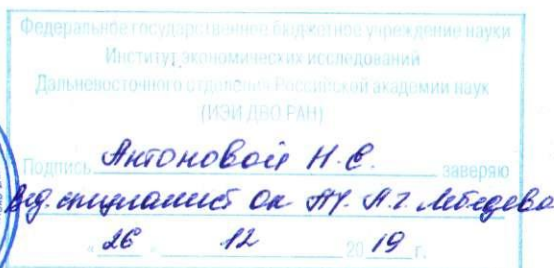 Федеральное государственное бюджетное учреждение науки
Институт экономических исследований
Дальневосточного отделения Российской академии наук
(ИЭИ ДВО РАН)
Подпись Антоновой Н.Е. заверяю
вед. специалист ОК Лебедева
« 26 » 12 20 19 г.